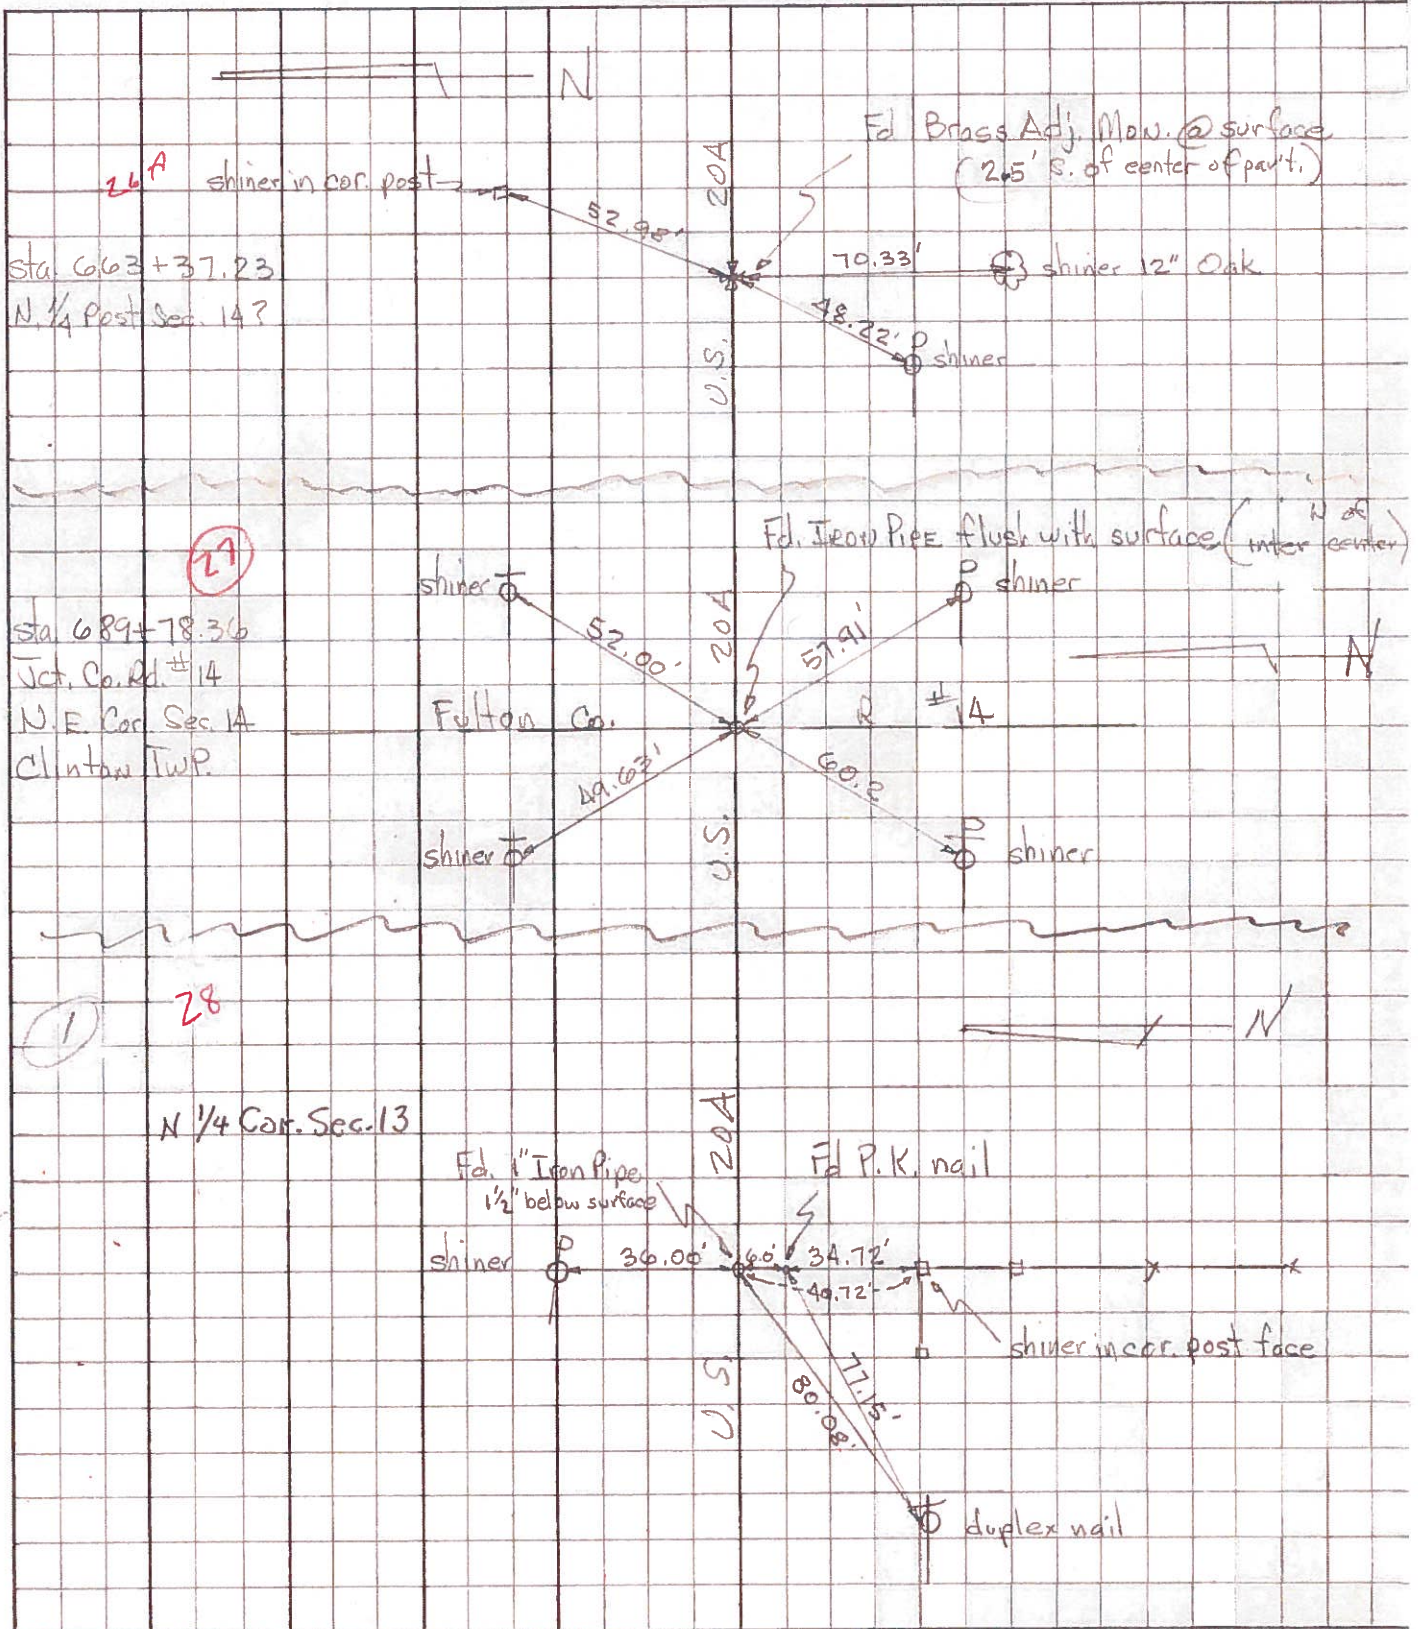 N
Fd Brass Adj. Mon. @ surface
(2.5' S. of center of pav't.)
26A
shiner in cor. post
20A
52.98'
70.33'
shiner 12" Oak
sta. 663+37.23
N. 1/4 Post Sec. 14?
48.22'
P
shiner
U.S.
Fd. Iron Pipe flush with surface (N of inter center)
27
shiner T
P
shiner
sta. 689+78.36
Jct. Co. Rd. #14
N.E. Cor. Sec. 14
Clinton Twp.
52.00'
20A
57.91'
N
Fulton Co.
R #14
49.63'
60.2
U.S.
shiner T
P
shiner
1
28
N
N 1/4 Cor. Sec. 13
20A
Fd. 1" Iron Pipe
1½" below surface
Fd P.K. nail
P
shiner
36.00'
6.0'
34.72'
40.72'
shiner in cor. post face
U.S.
77.15'
80.08'
T
duplex nail